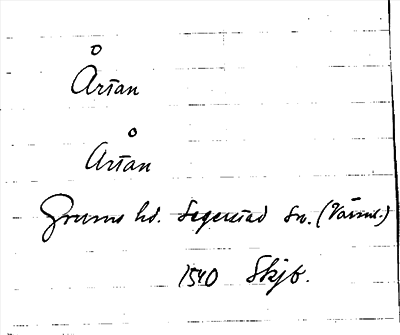 Årtan
Årtan
Grums hd. Segerstad sn. (Värml.)
1540 Skjb.